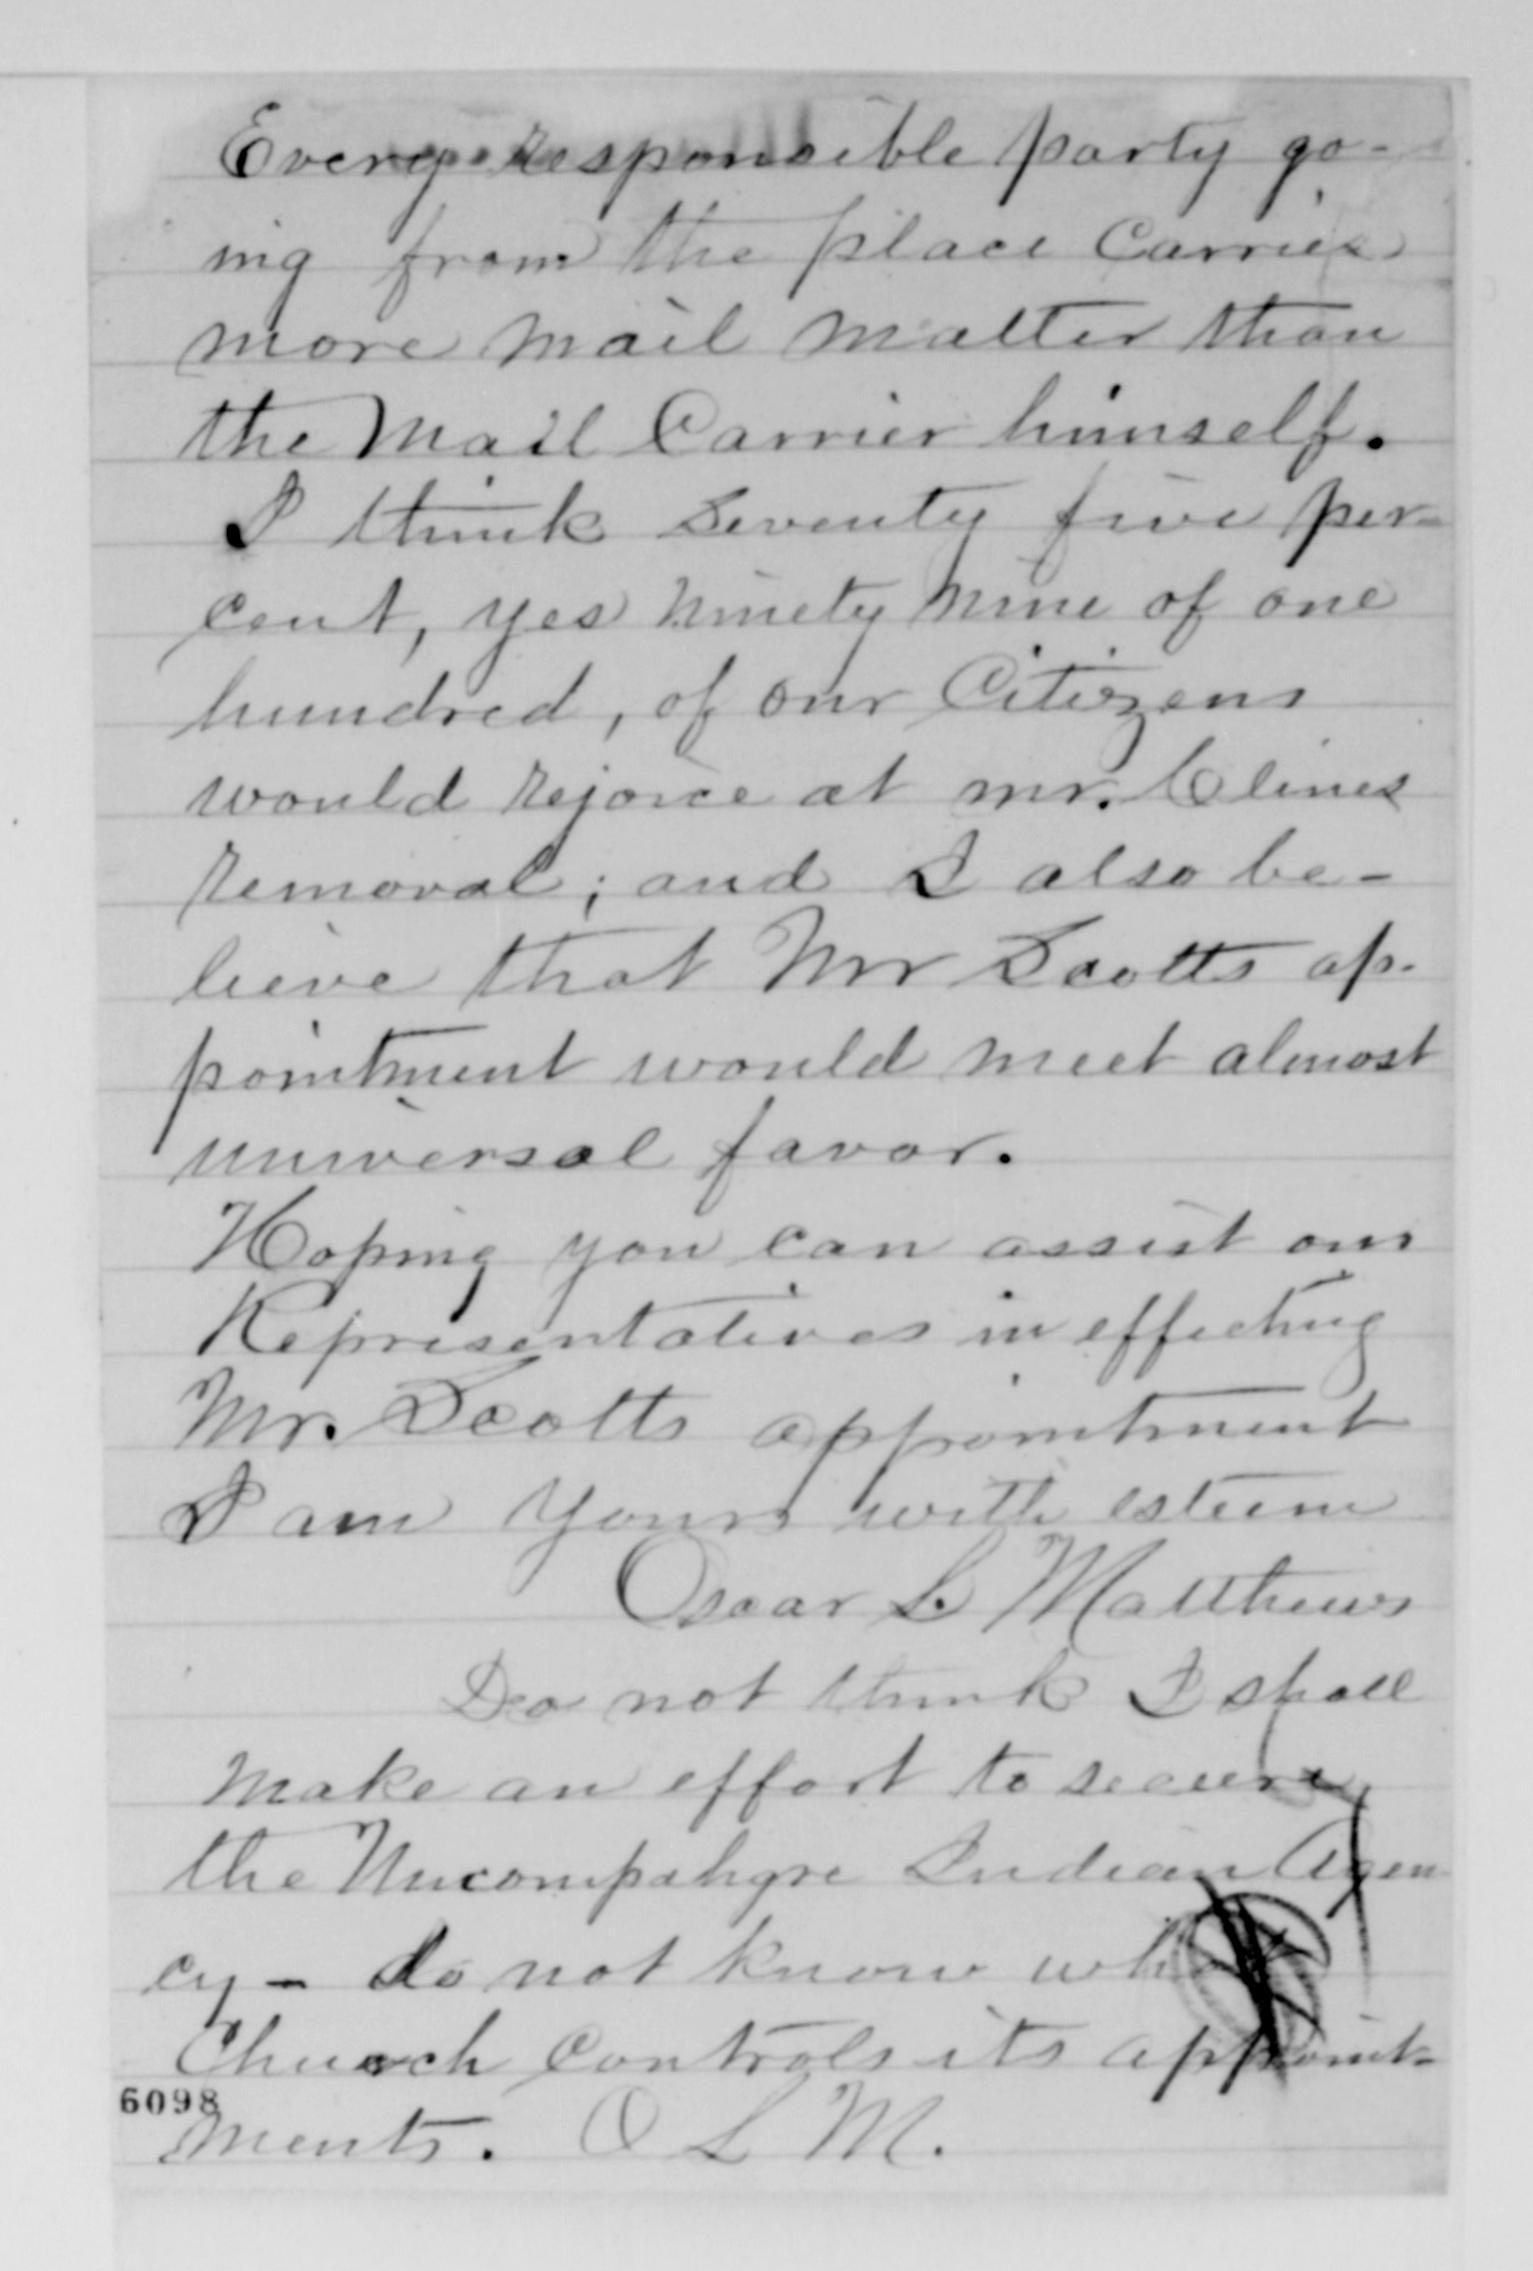 Every responsible party go-
ing from the place Carries
more mail matter than
the Mail Carrier himself.
I think Seventy five per-
cent, yes Ninety Nine of one
hundred, of our Citizens
would rejoice at mr. Clines
removal; and I also be-
lieve that Mr Scotts ap-
pointment would meet almost
universal favor.
Hoping you can assist our
Representatives in effecting
Mr. Scotts appointment
I am Yours with esteem
Oscar L. Matthews
Do not think I shall
make an effort to secure
the Uncompahgre Indian Agen
cy - do not know
Church Controls its appoint-
6098
ments. O L M.